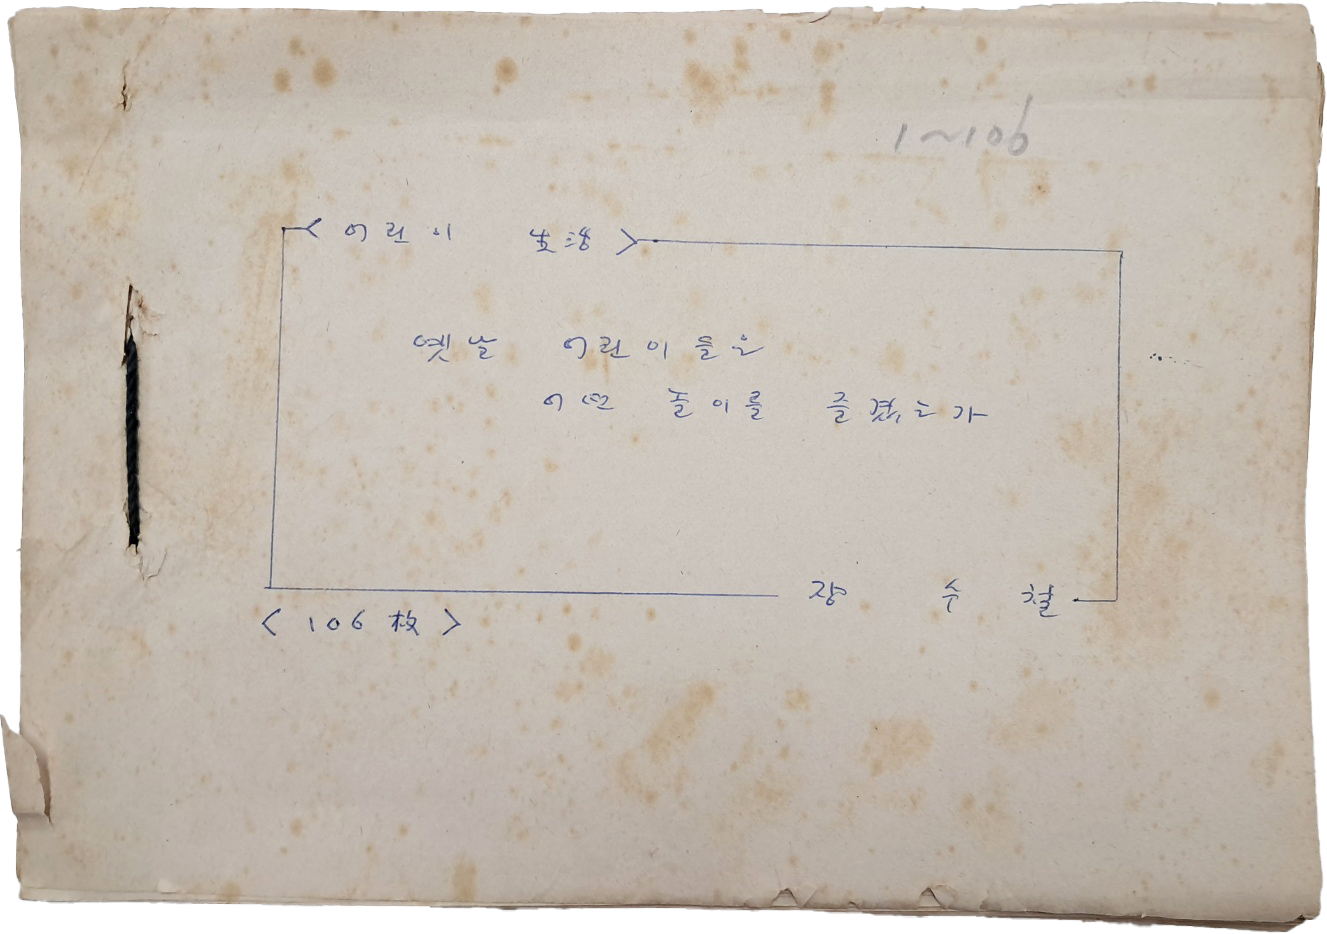 1~106
<어린이 生活>
옛날 어린이들은
어떤 놀이를 즐겼는가
장수철
<106枚>